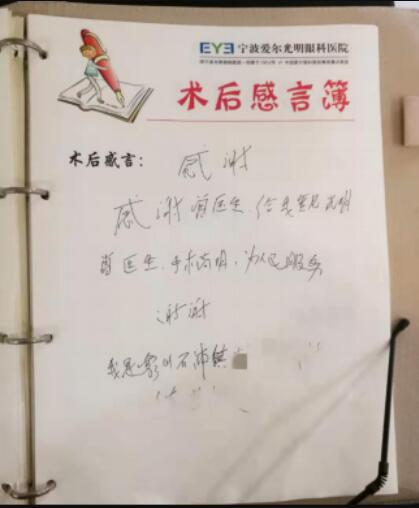 EYE 宁波爱尔光明眼科医院
术后感言簿
术后感言：
感谢
感谢 医生 给我 光明
医生 手术高明，为人民服务
谢谢
我是象山石浦镇